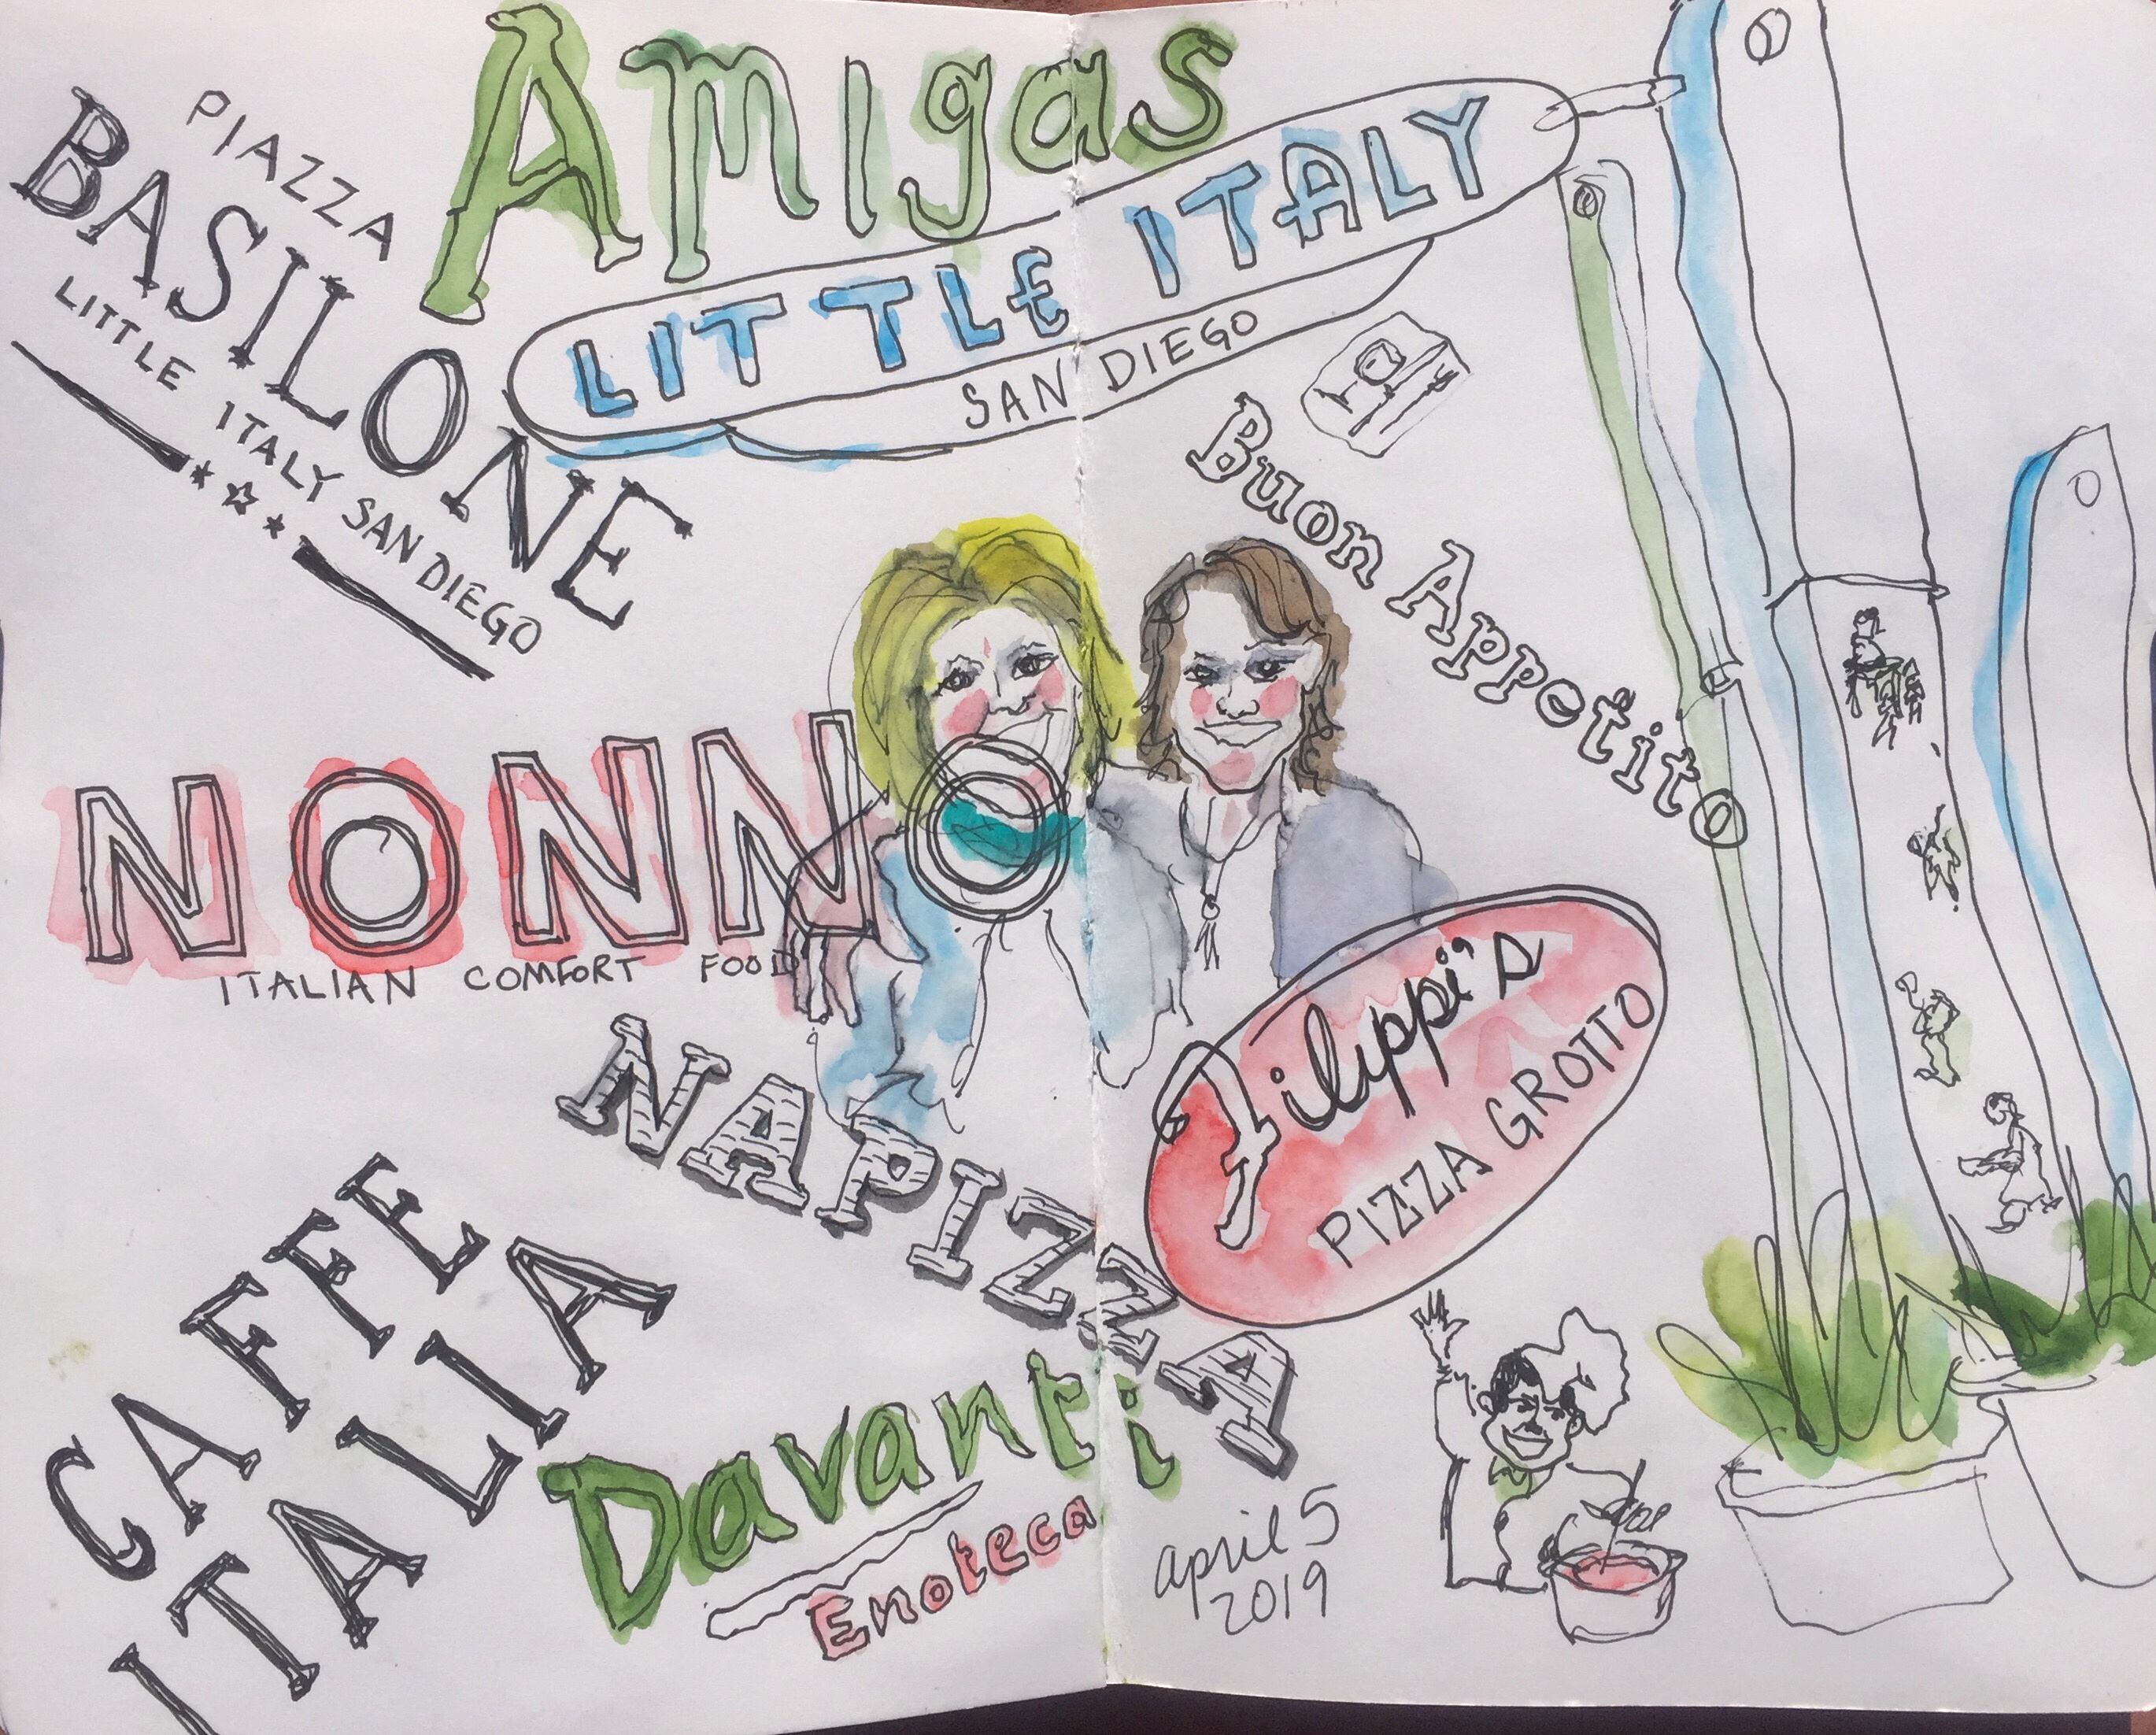 Amigas
PIAZZA
BASILONE
LITTLE ITALY SAN DIEGO
LITTLE ITALY
SAN DIEGO
Buon Appetito
NONNO
ITALIAN COMFORT FOOD
Filippi's
PIZZA GROTTO
NAPIZZA
CAFFE
ITALIA
Davanti
Enoteca
april 5
2019